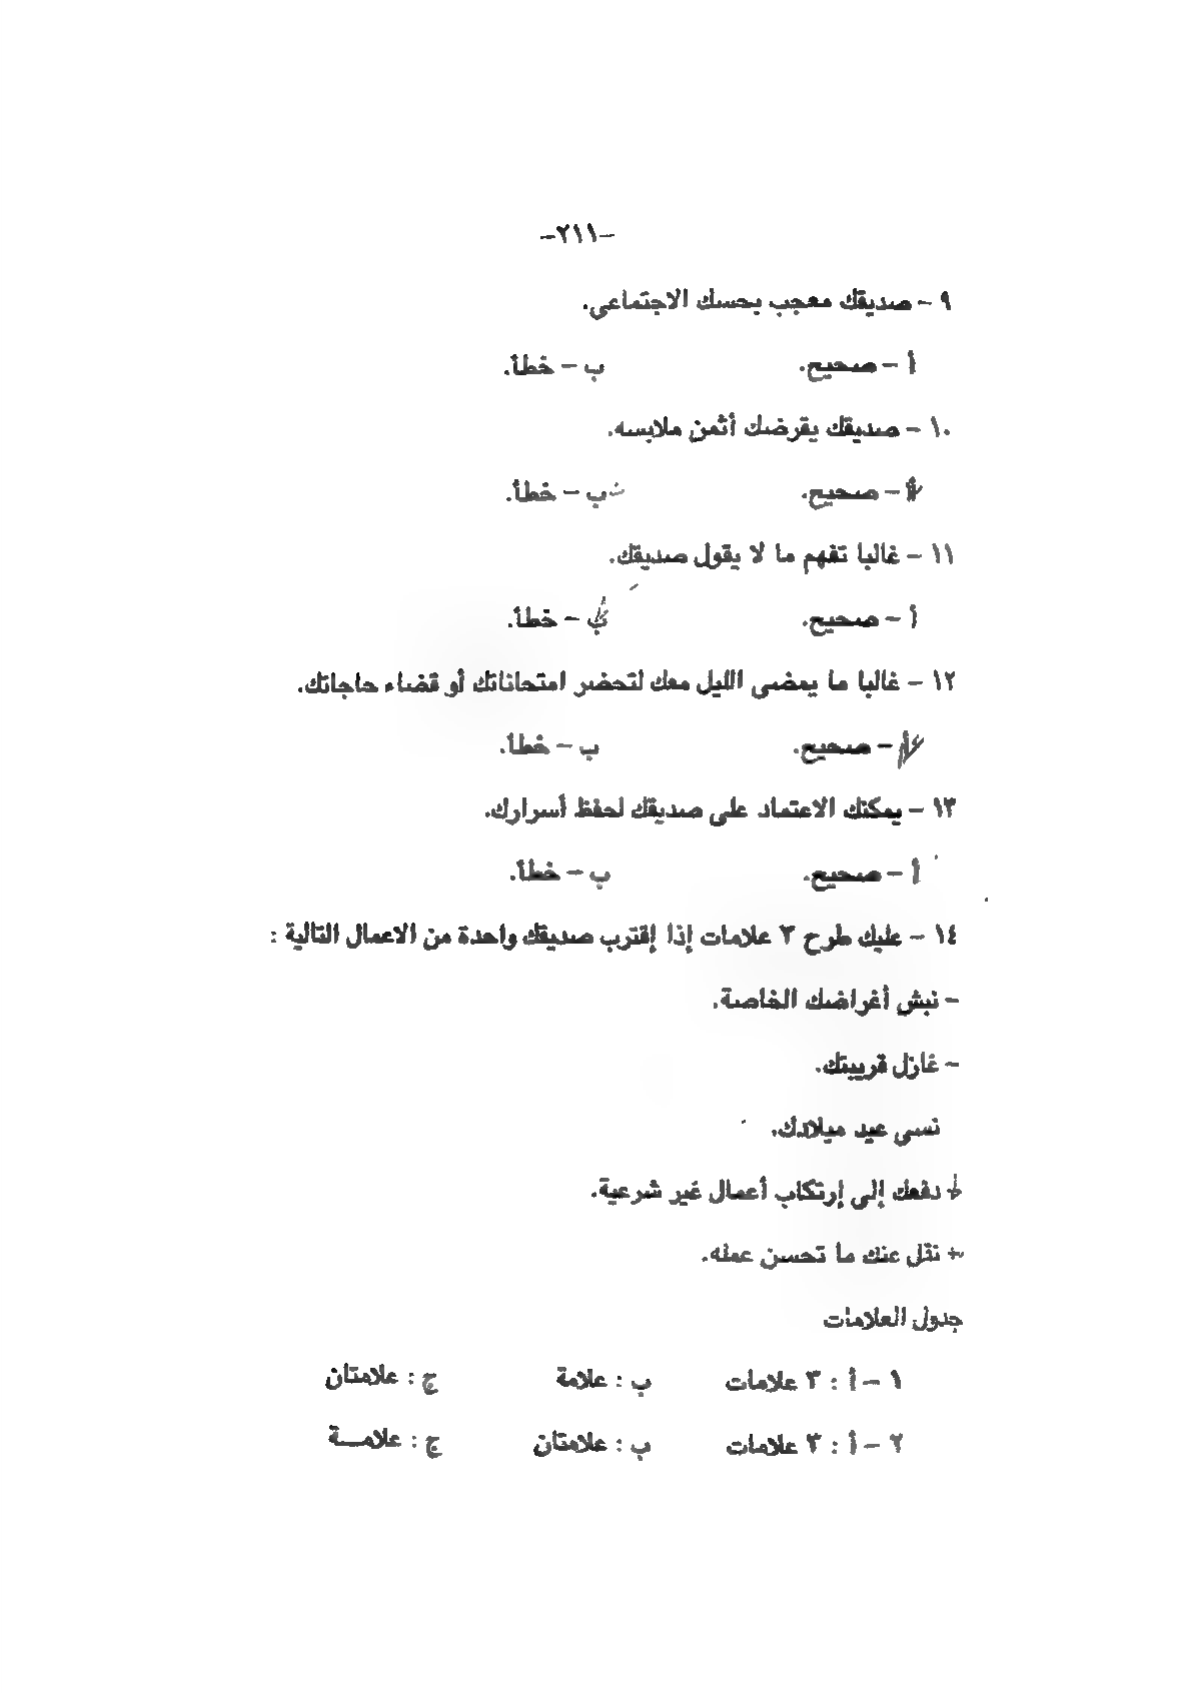 -٢١١-
٩ - صديقك معجب بحسك الاجتماعي.
أ - صحيح. ب - خطأ.
١٠ - صديقك يقرضك أثمن ملابسه.
أ - صحيح. ب - خطأ.
١١ - غالبا تفهم ما لا يقول صديقك.
أ - صحيح. ب - خطأ.
١٢ - غالبا ما يمضي الليل معك لتحضر امتحاناتك أو قضاء حاجاتك.
أ - صحيح. ب - خطأ.
١٣ - يمكنك الاعتماد على صديقك لحفظ أسرارك.
أ - صحيح. ب - خطأ.
١٤ - عليك طرح ٣ علامات إذا إقترب صديقك واحدة من الاعمال التالية :
- نبش أغراضك الخاصة.
- غازل قريبتك.
نسي عيد ميلادك.
- دفعك إلى إرتكاب أعمال غير شرعية.
- نقل عنك ما تحسن عمله.
جدول العلامات
١ - أ : ٣ علامات ب : علامة ج : علامتان
٢ - أ : ٣ علامات ب : علامتان ج : علامـــة